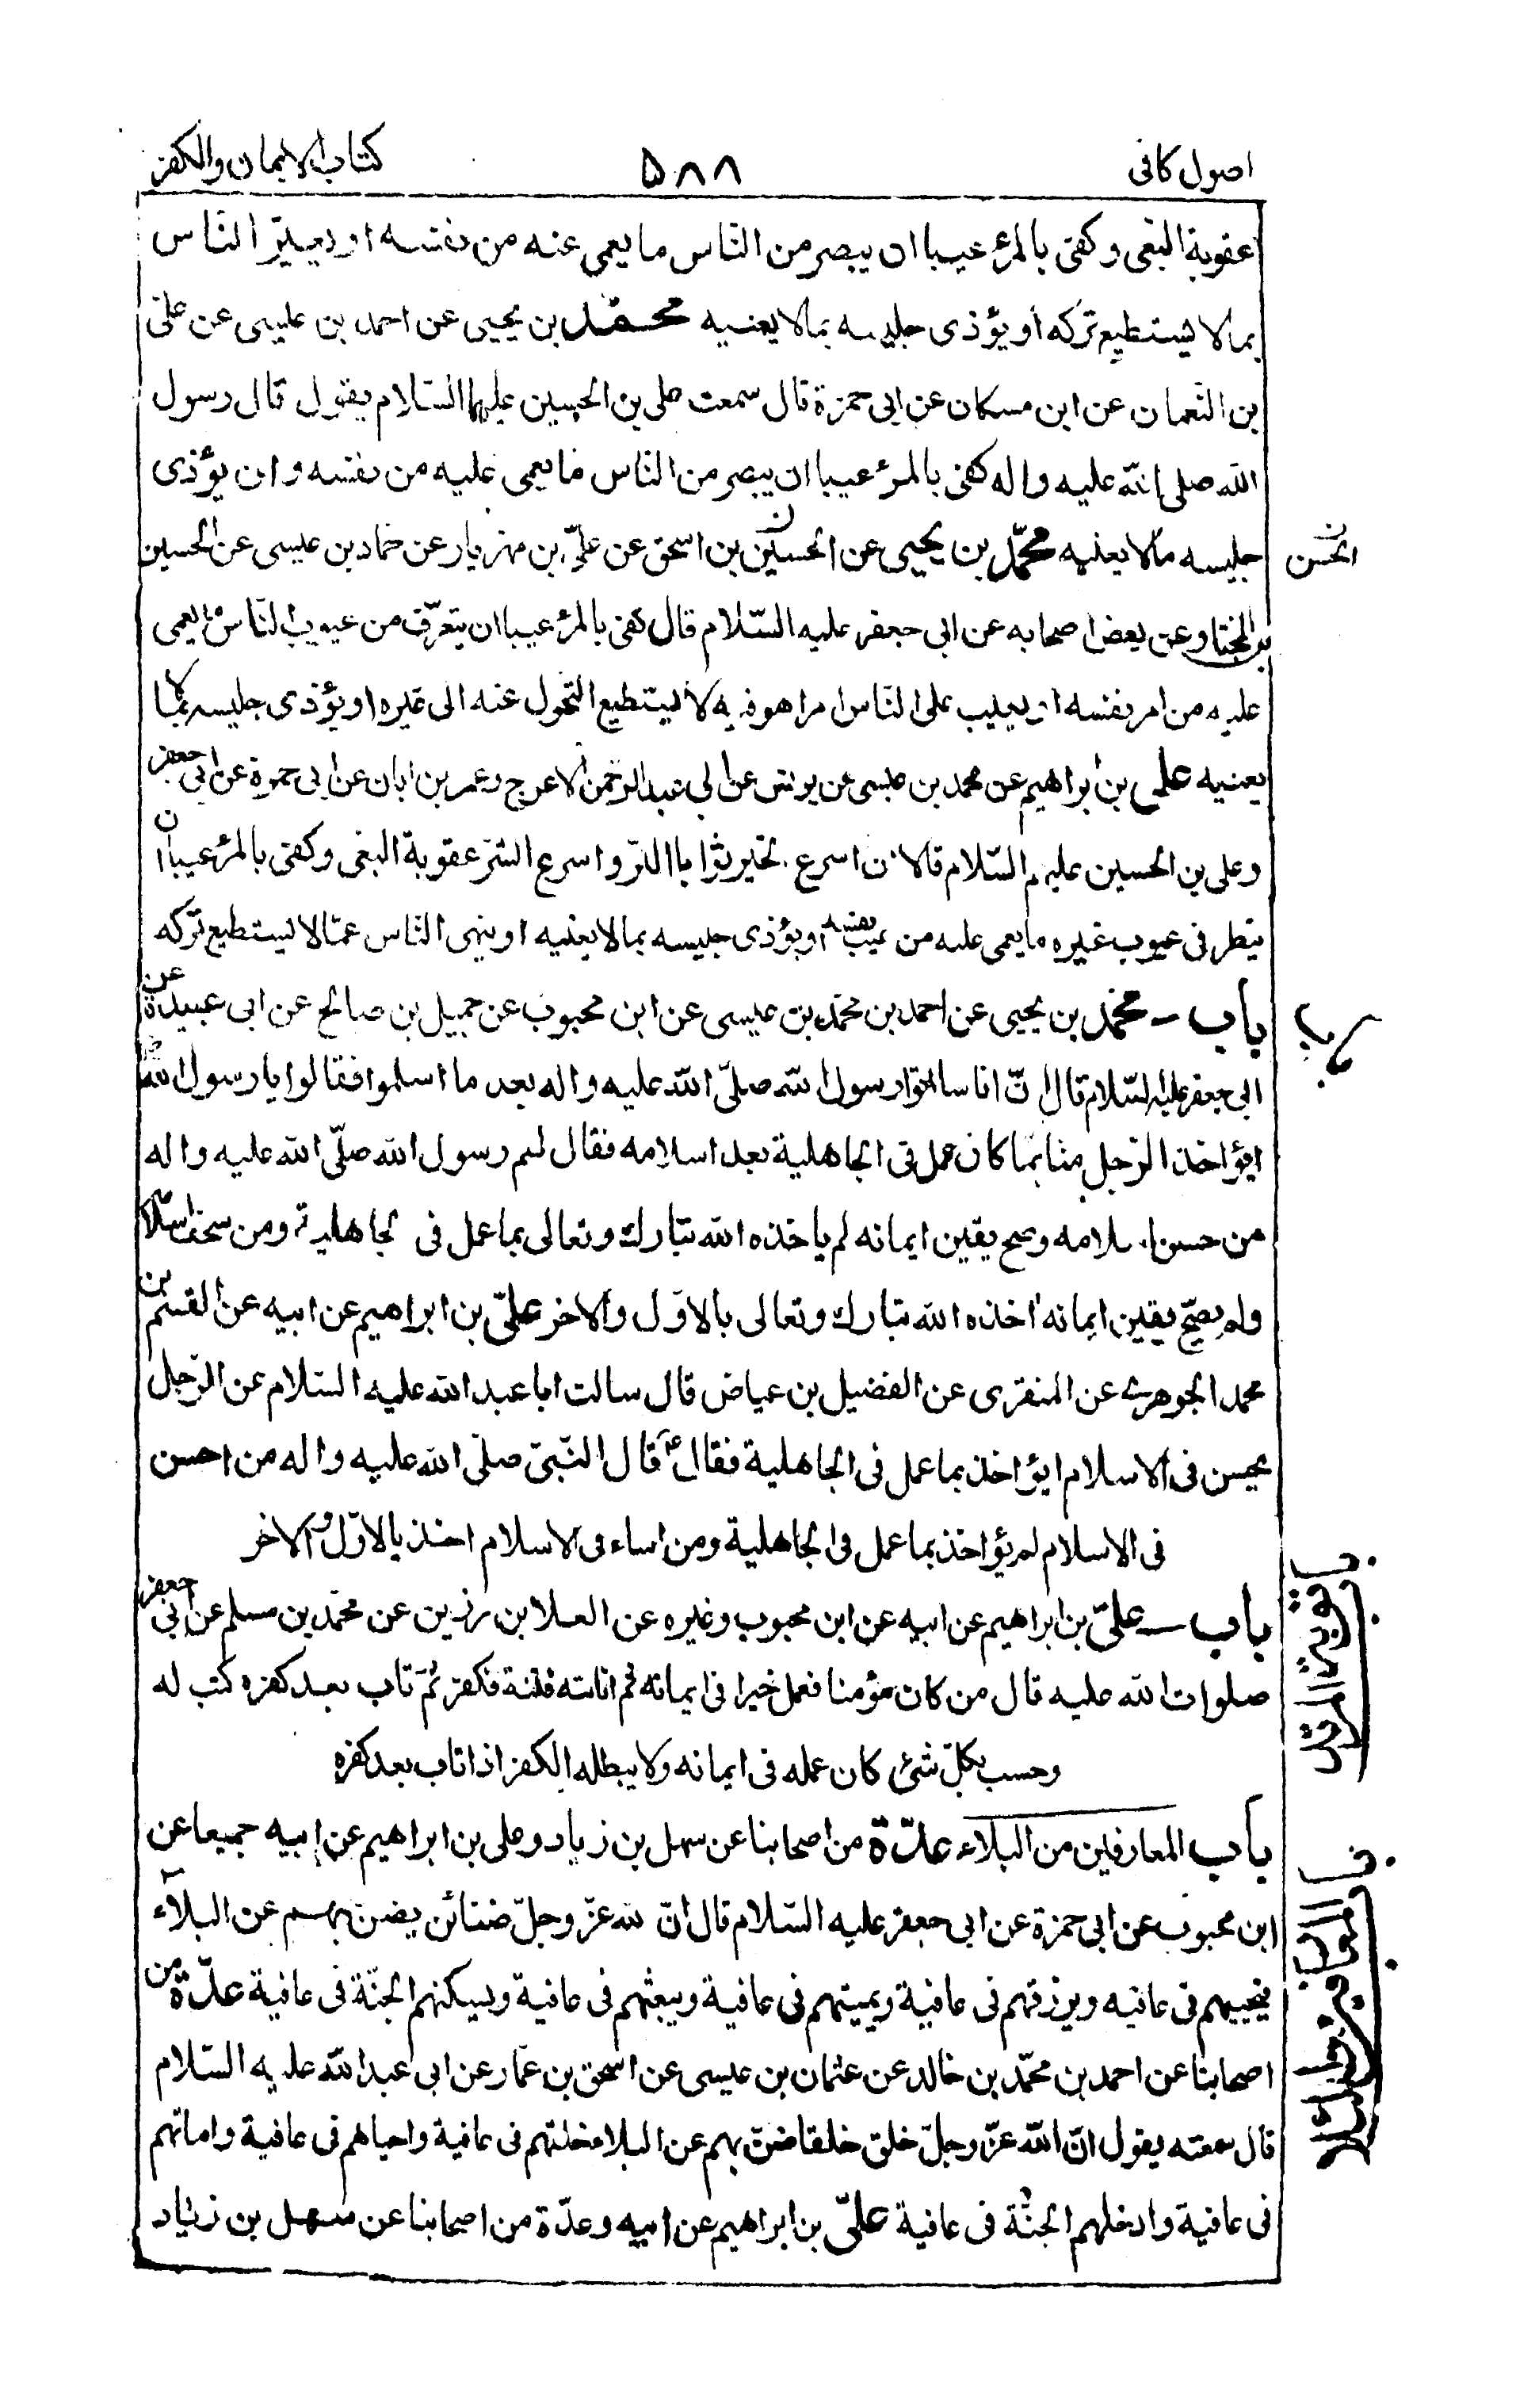 اصول كافى ۵۸۸ كتاب الايمان والكفر
عقوبة البغى وكفى بالمرء عيبا ان يبصر من الناس ما يعمى عنه من نفسه او يعيّر الناس
بما لا يستطيع تركه او يؤذى جليسه بما لا يعنيه محمد بن يحيى عن احمد بن عيسى عن على
بن النعمان عن ابن مسكان عن ابى حمزة قال سمعت على بن الحسين عليهما السلام يقول قال رسول
الله صلى الله عليه واله كفى بالمرء عيبا ان يبصر من الناس ما يعمى عليه من نفسه وان يؤذى
جليسه بما لا يعنيه محمّد بن يحيى عن الحسين بن اسحق عن علىّ بن مهزيار عن حماد بن عيسى عن الحسين
الحسن ن
بن المختار عن بعض اصحابه عن ابى جعفر عليه السّلام قال كفى بالمرء عيبا ان يتعرّف من عيوب النّاس ما يعمى
عليه من امر نفسه او يعيب على الناس امرا هو فيه لا يستطيع التحول عنه الى غيره او يؤذى جليسه بما لا
يعنيه على بن ابراهيم عن محمد بن عيسى عن يونس عن ابى عبد الرحمن الاعرج وعمر بن ابان عن ابى حمزة عن ابى جعفر
وعلى بن الحسين عليهم السّلام قالا ان اسرع الخير ثوابا البرّ واسرع الشرّ عقوبة البغى وكفى بالمرء عيبا ان
ينظر فى عيوب غيره ما يعمى عليه من عيب نفسه او يؤذى جليسه بما لا يعنيه او ينهى الناس عمّا لا يستطيع تركه
باب محمّد بن يحيى عن احمد بن محمّد بن عيسى عن ابن محبوب عن جميل بن صالح عن ابى عبيدة عن
باب
ابى جعفر عليه السّلام قال انّ اناسا اتوا رسول الله صلىّ الله عليه واله بعد ما اسلموا فقالوا يا رسول الله
ايؤاخذ الرّجل منا بما كان عمل فى الجاهلية بعد اسلامه فقال لهم رسول الله صلّى الله عليه واله
من حسن اسلامه وصح يقين ايمانه لم ياخذه الله تبارك وتعالى بما عمل فى الجاهلية ومن سخف اسلامه
ولم يصحّ يقين ايمانه اخذه الله تبارك وتعالى بالاوّل والاخر علىّ بن ابراهيم عن ابيه عن القسم بن
محمد الجوهرى عن المنقرى عن الفضيل بن عياض قال سالت ابا عبد الله عليه السّلام عن الرّجل
يحسن فى الاسلام ايؤاخذ بما عمل فى الجاهلية فقال ع قال النّبىّ صلّى الله عليه واله من احسن
فى الاسلام لم يؤاخذ بما عمل فى الجاهلية ومن اساء فى الاسلام اخذ بالاوّل والاخر
باب علىّ بن ابراهيم عن ابيه عن ابن محبوب وغيره عن العلا بن رزين عن محمّد بن مسلم عن ابى جعفر
صلوات الله عليه قال من كان مؤمنا فعمل خيرا فى ايمانه ثم اصابته فتنة فكفر ثمّ تاب بعد كفره كتب له
وحسب بكلّ شىء كان عمله فى ايمانه ولا يبطله الكفر اذا تاب بعد كفره
باب المعارفين من البلاء عدّة من اصحابنا عن سهل بن زياد وعلى بن ابراهيم عن ابيه جميعا عن
ابن محبوب عن ابى حمزة عن ابى جعفر عليه السّلام قال انّ لله عزّ وجلّ ضنائن يضنّ بهم عن البلآء
فيحييهم فى عافيه ويرزقهم فى عافية ويميتهم فى عافية ويبعثهم فى عافية ويسكنهم الجنّة فى عافية عدّة من
اصحابنا عن احمد بن محمّد بن خالد عن عثمان بن عيسى عن اسحق بن عمار عن ابى عبد الله عليه السّلام
قال سمعته يقول انّ الله عزّ وجلّ خلق خلقا ضنّ بهم عن البلاء خلقهم فى عافية واحياهم فى عافية واماتهم
فى عافية وادخلهم الجنّة فى عافية علىّ بن ابراهيم عن ابيه وعدّة من اصحابنا عن سهل بن زياد